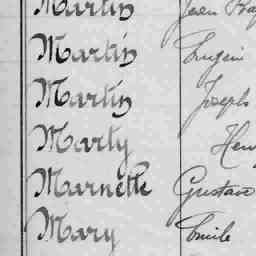 Martin Jean
Martin Eugène
Martin Joseph
Marty Hen
Marnette Gustav
Mary Emile